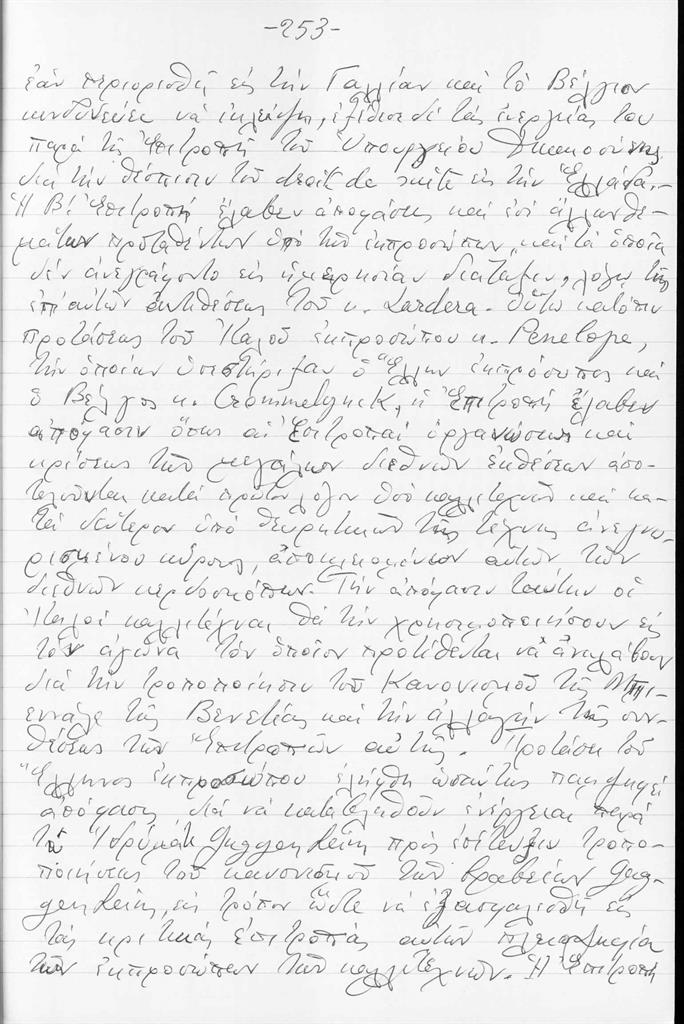 -253-
ἐὰν περιορισθῇ εἰς τὴν Γαλλίαν καὶ τὸ Βέλγιον
κινδυνεύει νὰ ἐκλείψῃ, ἐξέθεσε δὲ τὰς ἐνεργείας του
παρὰ τῇ Ἐπιτροπῇ τοῦ Ὑπουργείου Δικαιοσύνης
διὰ τὴν θέσπισιν τοῦ droit de suite εἰς τὴν Ἑλλάδα.-
Ἡ Β! Ἐπιτροπὴ ἔλαβεν ἀποφάσεις καὶ ἐπὶ ἄλλων θε-
μάτων προταθέντων ὑπὸ τῶν ἐκπροσώπων, καὶ τὰ ὁποῖα
δὲν ἀνεγράφοντο εἰς ἡμερησίαν διάταξιν, λόγῳ τῆς
ἐπ' αὐτῶν ἀντιθέσεως τοῦ κ. Lardera. Οὕτω κατόπιν
προτάσεως τοῦ Ἰταλοῦ ἐκπροσώπου κ. Penelope,
τὴν ὁποίαν ὑπεστήριξαν ὁ Ἕλλην ἐκπρόσωπος καὶ
ὁ Βέλγος κ. Crommelynck, ἡ Ἐπιτροπὴ ἔλαβεν
ἀπόφασιν ὅπως αἱ Ἐπιτροπαὶ ὀργανώσεως καὶ
κρίσεως τῶν μεγάλων διεθνῶν ἐκθέσεων ἀπο-
τελοῦνται κατὰ πρῶτον λόγον ἀπὸ καλλιτέχνας καὶ κα-
τὰ δεύτερον ὑπὸ θεωρητικῶν τῆς τέχνης ἀνεγνω-
ρισμένου κύρους, ἀποκλειομένων αὐτῶν τῶν
διεθνῶν κερδοσκόπων. Τὴν ἀπόφασιν ταύτην οἱ
Ἰταλοὶ καλλιτέχναι θὰ τὴν χρησιμοποιήσουν εἰς
τὸν ἀγῶνα τὸν ὁποῖον προτίθενται νὰ ἀναλάβουν
διὰ τὴν τροποποίησιν τοῦ Κανονισμοῦ τῆς Μπι-
εννάλε τῆς Βενετίας καὶ τὴν ἀλλαγὴν τῆς συν-
θέσεως τῶν Ἐπιτροπῶν αὐτῆς. Προτάσει τοῦ
Ἕλληνος ἐκπροσώπου ἐλήφθη ὡσαύτως παμψηφεὶ
ἀπόφασις διὰ νὰ καταβληθοῦν ἐνέργειαι παρὰ
τῷ Ἱδρύματι Guggenheim πρὸς ἐπίτευξιν τροπο-
ποιήσεως τοῦ κανονισμοῦ τῶν βραβείων Gug-
genheim, εἰς τρόπον ὥστε νὰ ἐξασφαλισθῇ εἰς
τὰς κριτικὰς ἐπιτροπὰς αὐτῶν πλειοψηφία
τῶν ἐκπροσώπων τῶν καλλιτεχνῶν. Ἡ Ἐπιτροπὴ